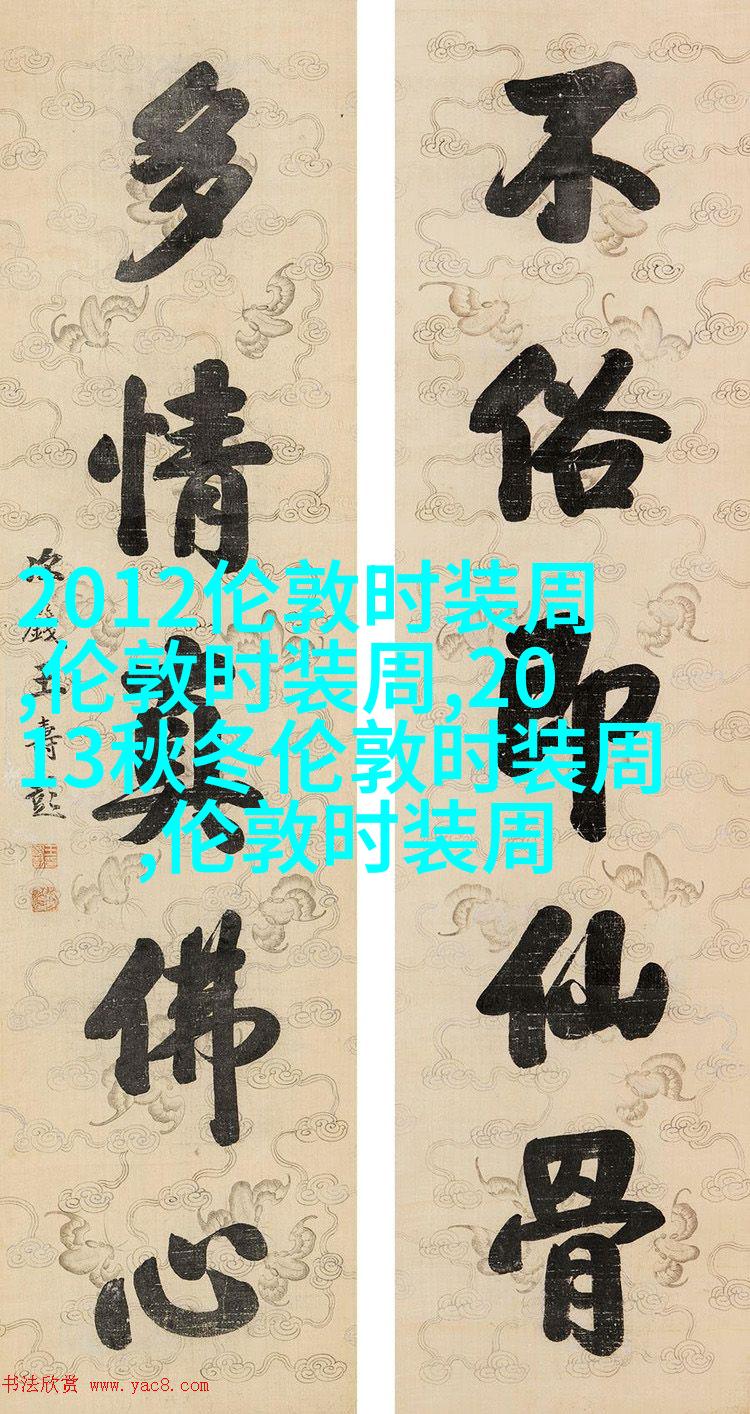 不俗即仙骨
多情真佛心
次籛王壽彭
2012伦敦时装周
,伦敦时装周,20
13秋冬伦敦时装周
,伦敦时装周
书法欣赏 www.yac8.com